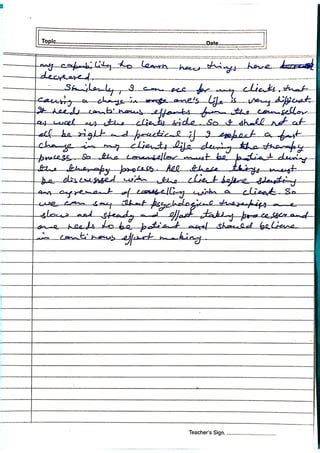 Topic Date
my capability to learn new things have
decreased.
Similarly, I can see for my clients, that
causing a change in one's life is very difficult.
It needs continous efforts from the counsellor
as well as the clients side. So I shall not at
all be right and practical if I expect a fast
change in my clients life during the therapy
process. So the counsellor must be patient during
the therapy process. All these things must
be discussed with the client before starting
an agrement of counselling with a client. So
we can say that psychological therapies are
slow and steady and effort taking processes and
one needs to be patient and should believe
in continous effort making
Teacher's Sign.